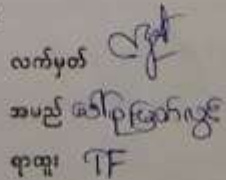 လက်မှတ်
အမည် ဒေါ်ဖြူဖြူတ်လွင်
ရာထူး TF